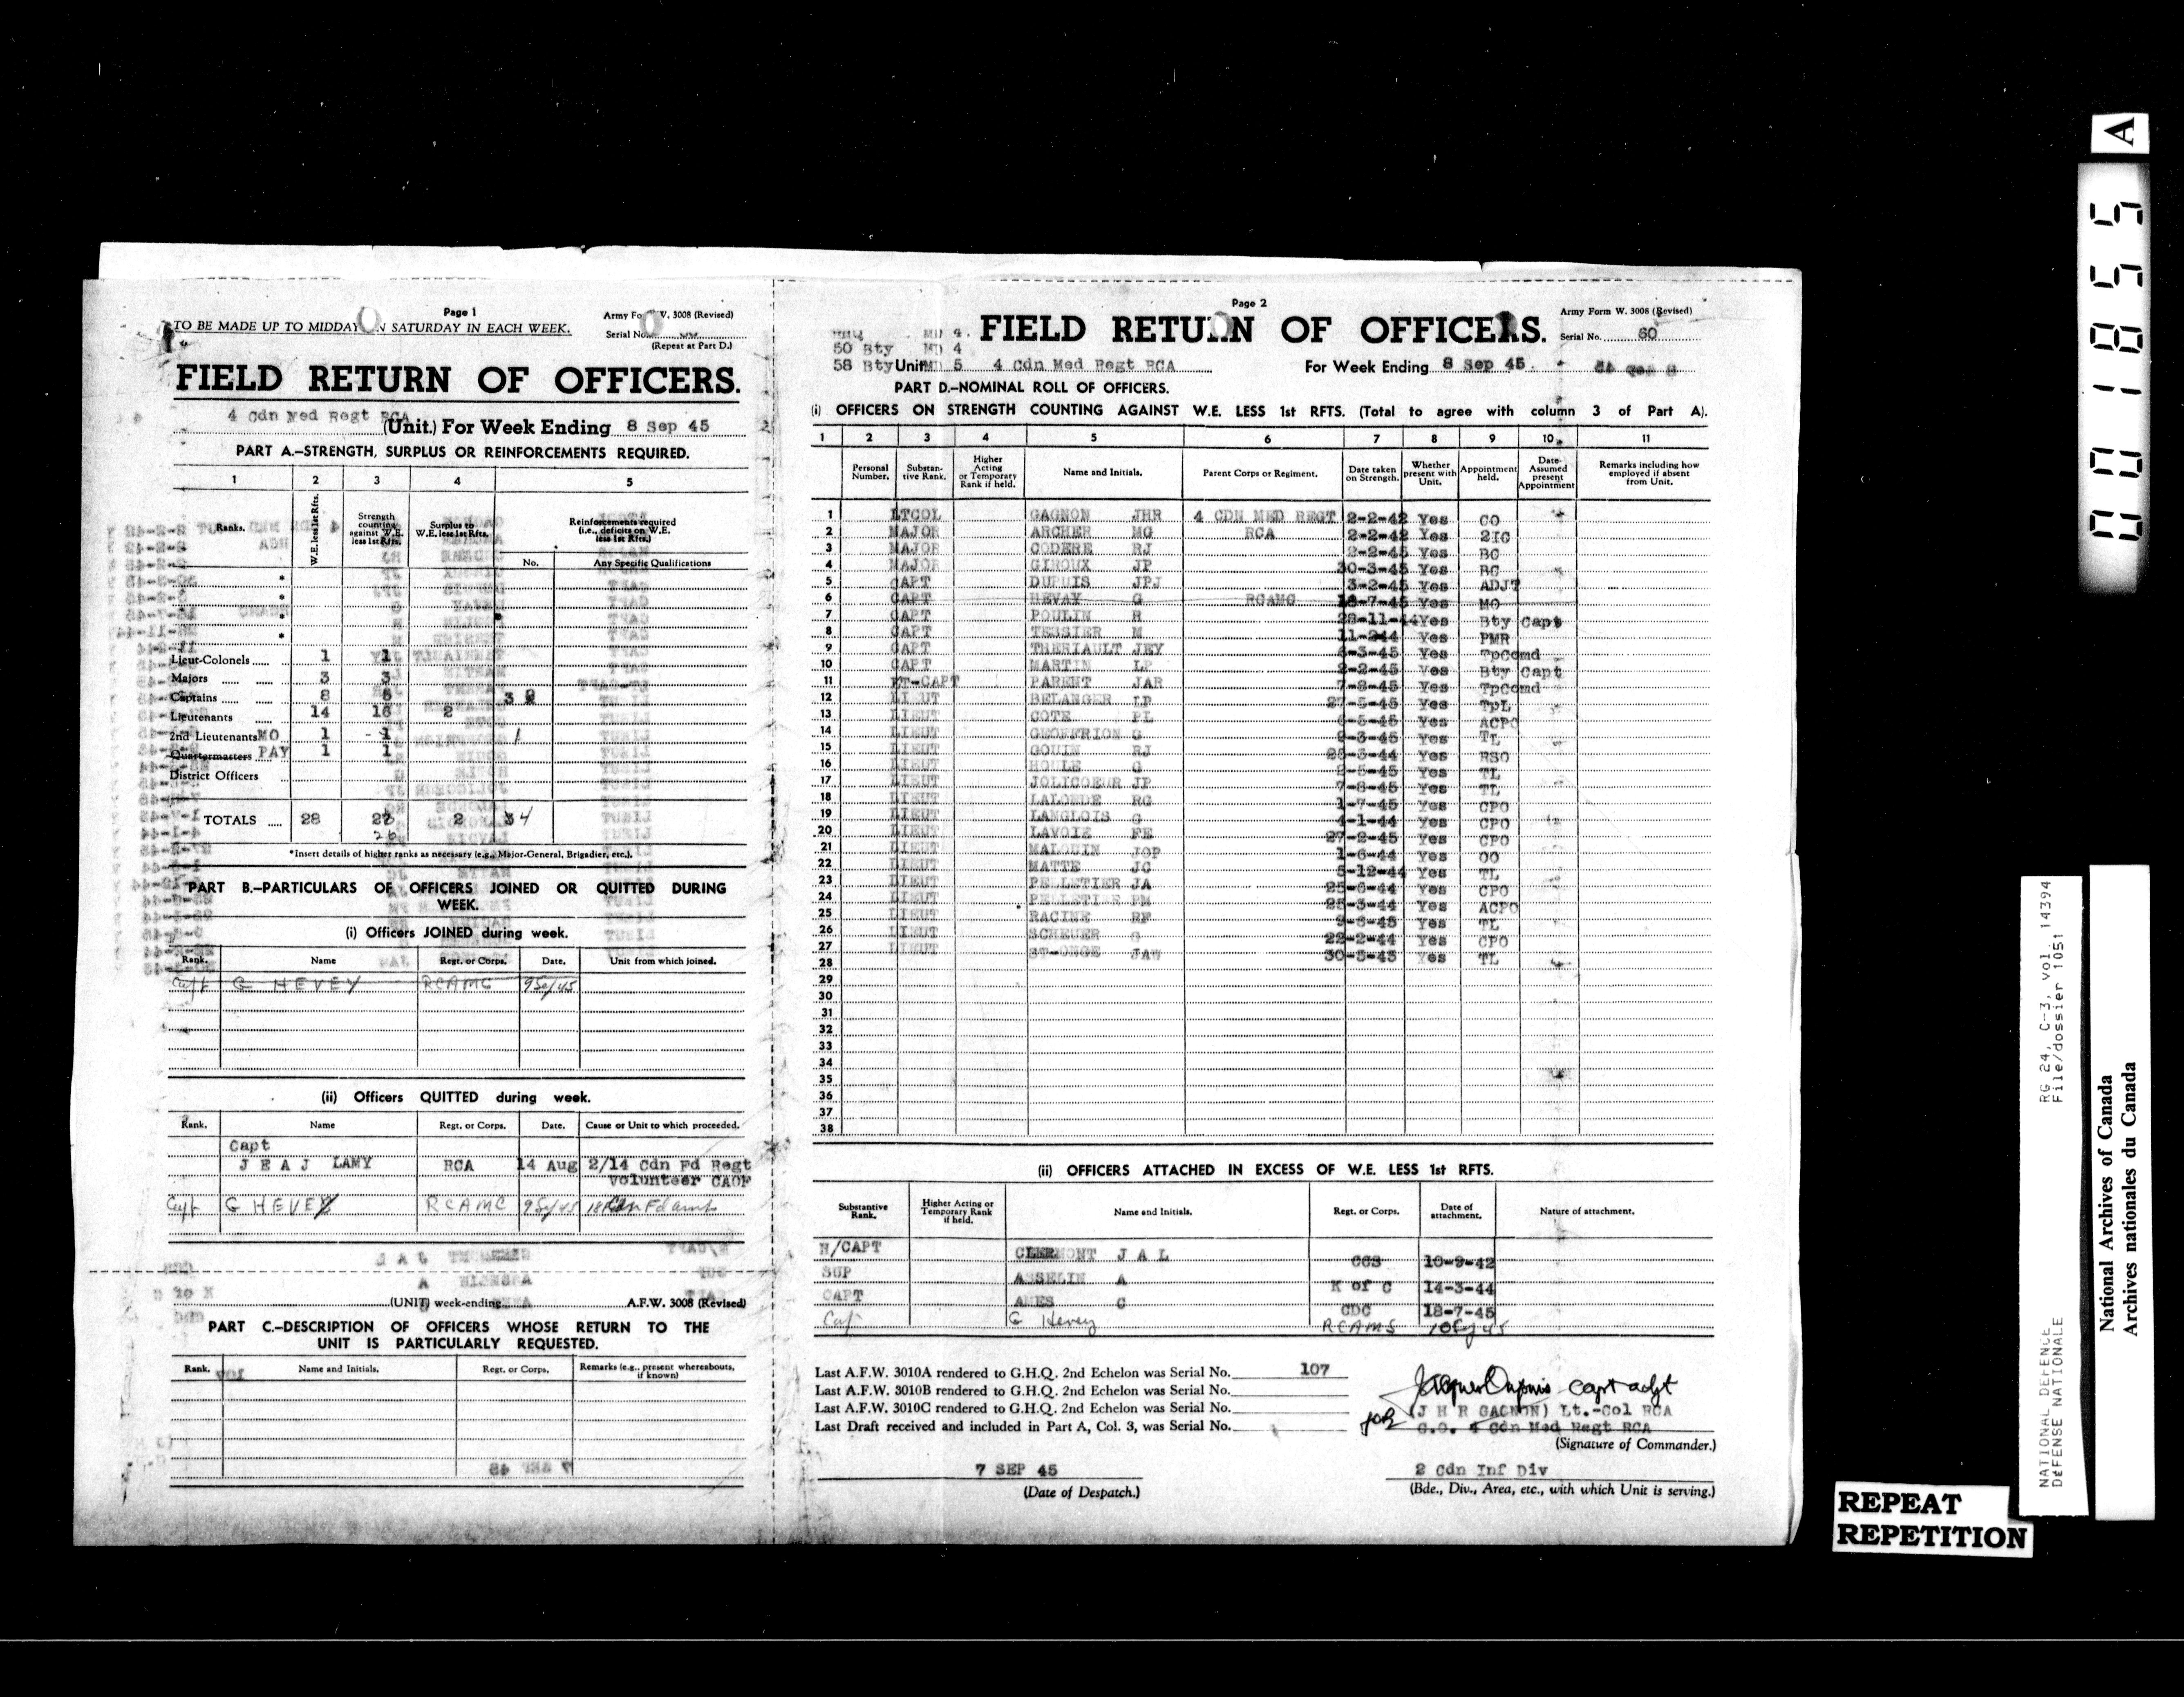 Page 1
TO BE MADE UP TO MIDDAY ON SATURDAY IN EACH WEEK.
Army Form W. 3008 (Revised)
Serial No.
(Repeat at Part D.)
FIELD RETURN OF OFFICERS.
4 Cdn Med Regt RCA (Unit.) For Week Ending 8 Sep 45
PART A.—STRENGTH, SURPLUS OR REINFORCEMENTS REQUIRED.
1 2 3 4 5
Ranks. W.E. less 1st Rfts. Strength counting against W.E. less 1st Rfts. Surplus to W.E. less 1st Rfts. Reinforcements required (i.e., deficits on W.E. less 1st Rfts.)
No. Any Specific Qualifications
*
*
*
*
Lieut-Colonels 1 1
Majors 3 3
Captains 8 5 3
Lieutenants 14 16 2
2nd Lieutenants MO 1 1 1
Quartermasters PAY 1 1
District Officers
TOTALS 28 2 4
26
*Insert details of higher ranks as necessary (e.g., Major-General, Brigadier, etc.).
PART B.—PARTICULARS OF OFFICERS JOINED OR QUITTED DURING WEEK.
(i) Officers JOINED during week.
Rank. Name Regt. or Corps. Date. Unit from which joined.
Capt G HEVEY RCAMC 9 Sep 45
(ii) Officers QUITTED during week.
Rank. Name Regt. or Corps. Date. Cause or Unit to which proceeded.
Capt
J E A J LAMY RCA 14 Aug 2/14 Cdn Fd Regt
Volunteer CAOF
Capt G HEVEY RCAMC 9 Sep 45 18 Cdn Fd Amb
(UNIT) week-ending A.F.W. 3008 (Revised)
PART C.—DESCRIPTION OF OFFICERS WHOSE RETURN TO THE UNIT IS PARTICULARLY REQUESTED.
Rank. Name and Initials. Regt. or Corps. Remarks (e.g., present whereabouts, if known)
Page 2
Army Form W. 3008 (Revised)
RHQ MD 4
50 Bty MD 4
58 Bty MD 5
FIELD RETURN OF OFFICERS.
Serial No. 60
Unit 4 Cdn Med Regt RCA For Week Ending 8 Sep 45
PART D.—NOMINAL ROLL OF OFFICERS.
(i) OFFICERS ON STRENGTH COUNTING AGAINST W.E. LESS 1st RFTS. (Total to agree with column 3 of Part A).
1 2 3 4 5 6 7 8 9 10 11
Personal Number. Substantive Rank. Higher Acting or Temporary Rank if held. Name and Initials. Parent Corps or Regiment. Date taken on Strength. Whether present with Unit. Appointment held. Date Assumed present Appointment Remarks including how employed if absent from Unit.
1 LTCOL GAGNON JHR 4 CDN MED REGT 2-2-42 Yes CO
2 MAJOR ARCHER MG RCA 2-2-42 Yes 2IC
3 MAJOR CODERE RJ 2-2-45 Yes BC
4 MAJOR GIROUX JP 30-3-45 Yes BC
5 CAPT DUPUIS JPJ 3-2-45 Yes ADJT
6 CAPT HEVAY G RCAMC 18-7-45 Yes MO
7 CAPT POULIN R 28-11-44 Yes Bty Capt
8 CAPT TESSIER M Yes PMR
9 CAPT THERIAULT JEY 6-3-45 Yes TpComd
10 CAPT MARTIN LP 2-2-45 Yes Bty Capt
11 LT-CAPT PARENT JAR 7-8-45 Yes TpComd
12 LIEUT BELANGER LP 27-5-45 Yes TpL
13 LIEUT COTE PL 6-5-45 Yes ACPO
14 LIEUT GEOFFRION G 9-3-45 Yes TL
15 LIEUT GOUIN RJ 28-3-44 Yes RSO
16 LIEUT HOULE G 2-5-45 Yes TL
17 LIEUT JOLICOEUR JP 7-8-45 Yes TL
18 LIEUT LALONDE RG 1-7-45 Yes CPO
19 LIEUT LANGLOIS G 4-1-44 Yes CPO
20 LIEUT LAVOIE FE 27-2-45 Yes CPO
21 LIEUT MALOUIN JOP 1-6-44 Yes OO
22 LIEUT MATTE JC 5-12-44 Yes TL
23 LIEUT PELLETIER JA 25-6-44 Yes CPO
24 LIEUT PELLETIER PM 25-3-44 Yes ACPO
25 LIEUT RACINE RF Yes TL
26 LIEUT SCHEUER G 22-2-44 Yes CPO
27 LIEUT ST-ONGE JAW Yes TL
28
29
30
31
32
33
34
35
36
37
38
(ii) OFFICERS ATTACHED IN EXCESS OF W.E. LESS 1st RFTS.
Substantive Rank. Higher Acting or Temporary Rank if held. Name and Initials. Regt. or Corps. Date of attachment. Nature of attachment.
H/CAPT CLERMONT J A L CCS 10-9-42
SUP ASSELIN A K of C 14-3-44
CAPT AMES C CDC 18-7-45
Cap G Hevey RCAMS
Last A.F.W. 3010A rendered to G.H.Q. 2nd Echelon was Serial No. 107
Last A.F.W. 3010B rendered to G.H.Q. 2nd Echelon was Serial No.
Last A.F.W. 3010C rendered to G.H.Q. 2nd Echelon was Serial No.
Last Draft received and included in Part A, Col. 3, was Serial No.
Jacques Dupuis capt adjt
for (J H R GAGNON) Lt.-Col RCA
C.O. 4 Cdn Med Regt RCA
(Signature of Commander.)
7 SEP 45
(Date of Despatch.)
2 Cdn Inf Div
(Bde., Div., Area, etc., with which Unit is serving.)
A
001855
RG 24, C-3, vol. 14394
File/dossier 1051
NATIONAL DEFENCE
DÉFENSE NATIONALE
National Archives of Canada
Archives nationales du Canada
REPEAT
REPETITION